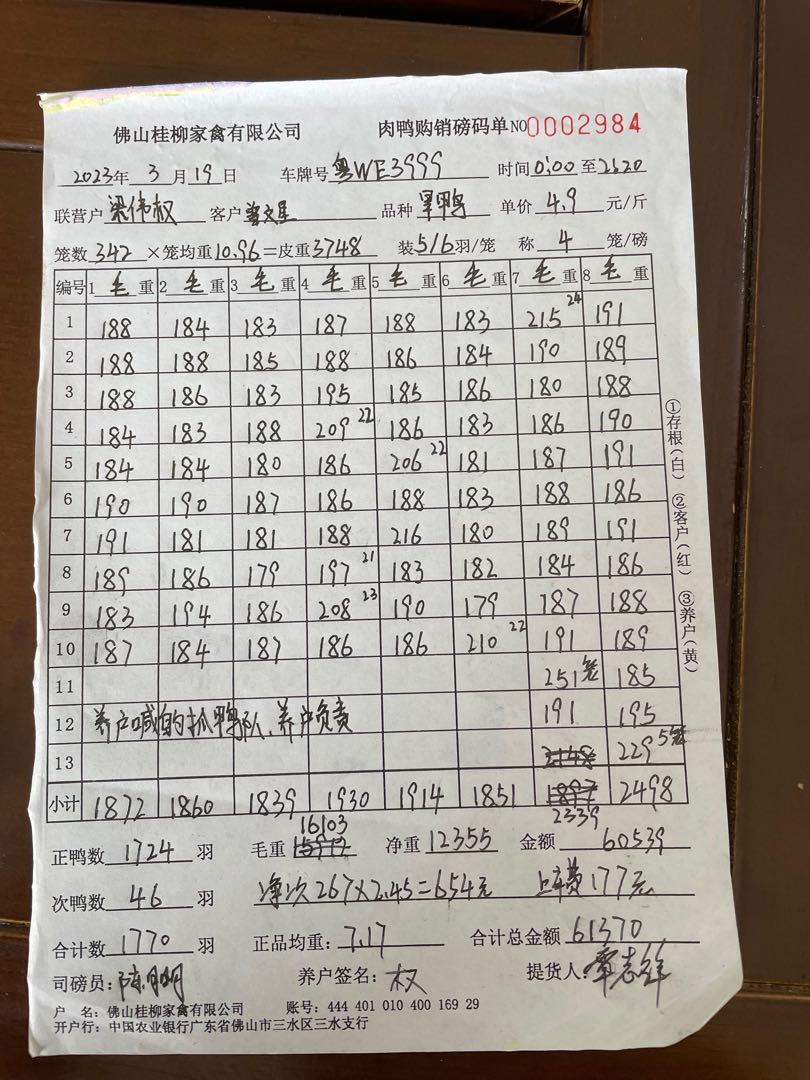 佛山桂柳家禽有限公司 肉鸭购销磅码单 NO 0002984
2023年 3 月 19 日 车牌号 粤WE3999 时间 0:00 至 2:20
联营户 梁伟权 客户 品种 单价 4.9 元/斤
笼数 342 ×笼均重 10.96 =皮重 3748 装 5/6 羽/笼 称 4 笼/磅
编号 1 毛 重 2 毛 重 3 毛 重 4 毛 重 5 毛 重 6 毛 重 7 毛 重 8 毛 重
1 188 184 183 187 188 183 215 24 191
2 188 188 185 188 186 184 190 189
3 188 186 183 195 185 186 180 188
4 184 183 188 209 22 186 183 186 190
5 184 184 180 186 206 22 181 187 191
6 190 190 187 186 188 183 188 186
7 191 181 181 188 216 180 189 191
8 189 186 179 197 21 183 182 184 186
9 183 194 186 208 23 190 179 187 188
10 187 184 187 186 186 210 22 191 189
11 251 185
12 养户喊的抓鸭队、养户负责 191 195
13 2148 229 5笼
小计 1872 1860 1839 1930 1914 1851 1897 2498
16103 2339
正鸭数 1724 羽 毛重 净重 12355 金额 60539
次鸭数 46 羽 净次 267×2.45=654元 上车费 177元
合计数 1770 羽 正品均重: 7.17 合计总金额 61370
司磅员: 养户签名: 权 提货人:
户 名: 佛山桂柳家禽有限公司 账号: 444 401 010 400 169 29
开户行: 中国农业银行广东省佛山市三水区三水支行
①存根(白) ②客户(红) ③养户(黄)